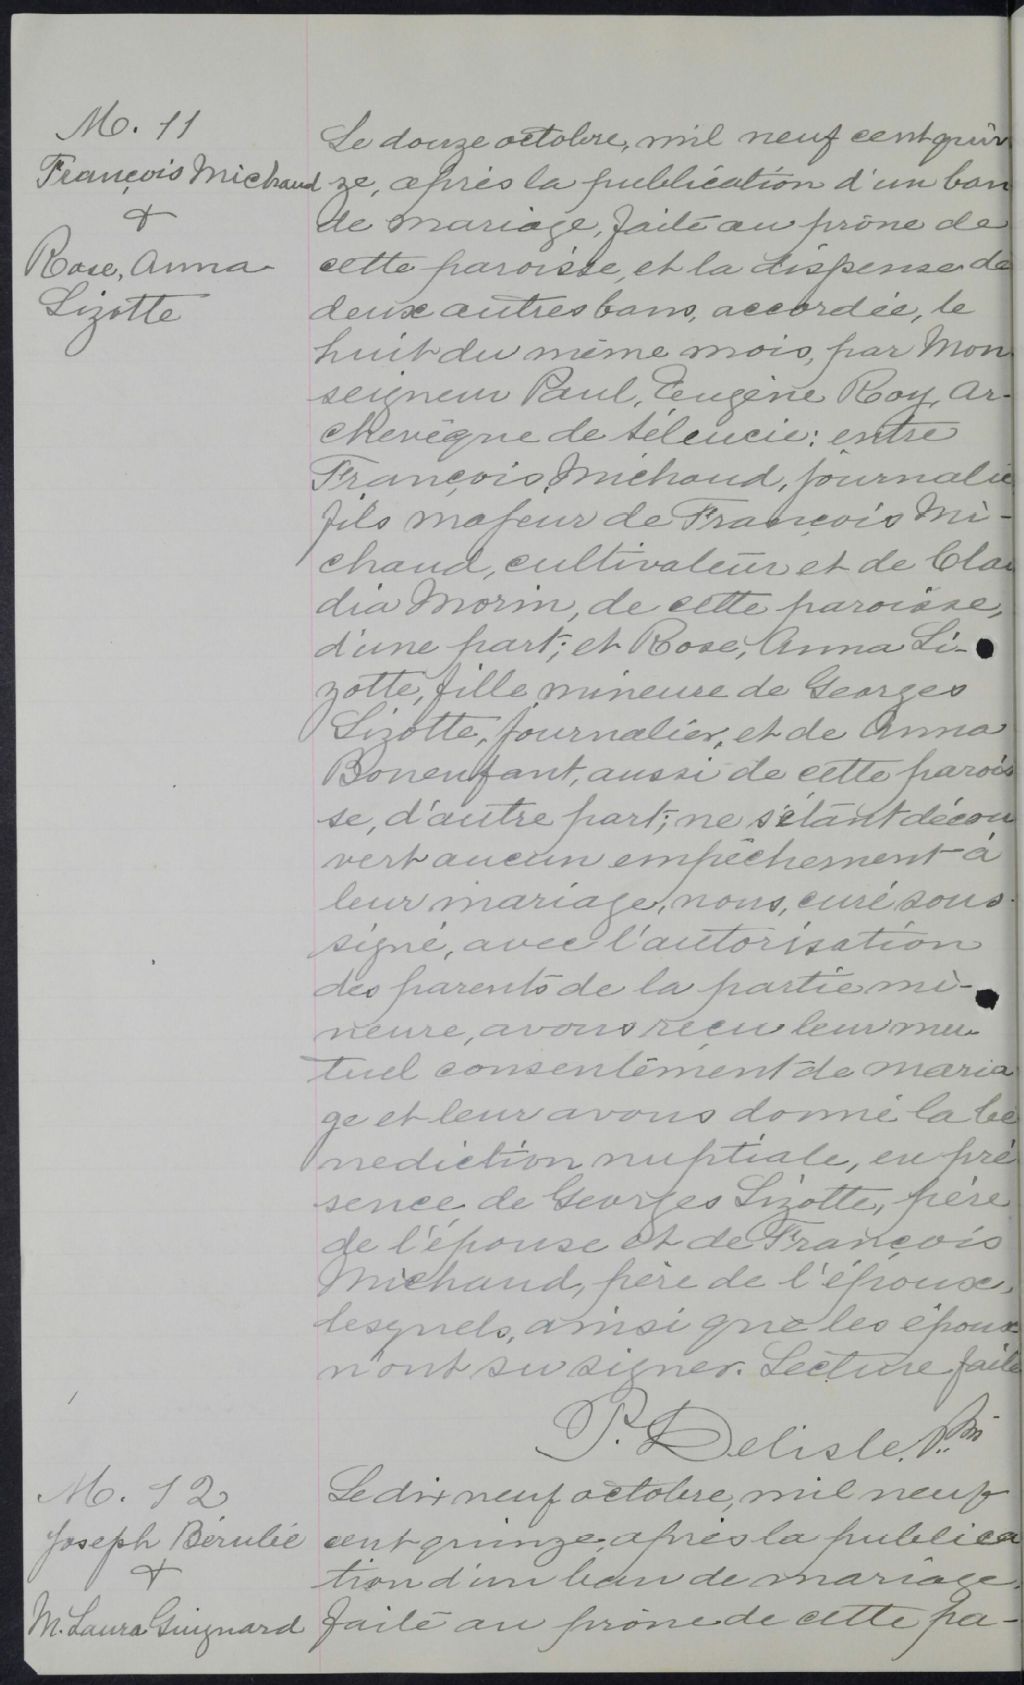 M. 11
François Michaud
&
Rose, Anna
Lizotte
Le douze octobre, mil neuf cent quin
ze, après la publication d'un ban
de mariage, faite au prône de
cette paroisse, et la dispense de
deux autres bans, accordée, le
huit du même mois, par Mon
seigneur Paul, Eugène Roy, ar-
chevêque de Séleucie: entre
François Michaud, journalie
fils majeur de François Mi-
chaud, cultivateur et de Clau
dia Morin, de cette paroisse,
d'une part; et Rose, Anna Li-
zotte, fille mineure de Georges
Lizotte, journalier, et de Anna
Bonenfant, aussi de cette parois
se, d'autre part; ne s'étant décou
vert aucun empêchement à
leur mariage, nous, curé sous-
signé, avec l'autorisation
des parents de la partie mi-
neure, avons reçu leur mu-
tuel consentement de maria
ge et leur avons donné la bé
nediction nuptiale, en pré
sence de Georges Lizotte, père
de l'épouse et de François
Michaud, père de l'époux,
lesquels, ainsi que les époux
n'ont su signer. Lecture faite
P. Delisle, Ptre
M. 12
Joseph Bérulée
&
M. Laura Guignard
Le dix neuf octobre, mil neuf
cent quinze, après la publica
tion d'un ban de mariage,
faite au prône de cette pa-